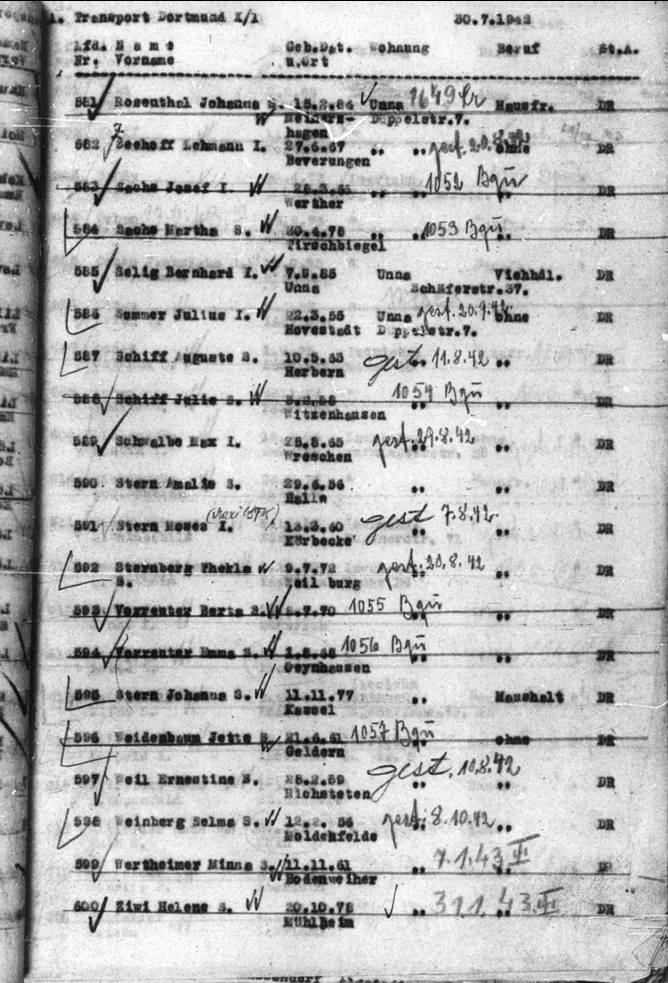 1. Transport Dortmund X/1 30.7.1942
Lfd. Name Geb.Dat. Wohnung Beruf St.A.
Nr. Vorname u.Ort
581 Rosenthal Johanna S. 15.2.84 Unna Hausfr. DR
Düppelstr.7.
hagen
582 Lehmann I. 27.6.67 " gest. 20.8.42 ohne DR
Beverungen
583 Sachs Josef I. " 1052 Bgü " DR
Werther
584 Sachs Martha S. 30.4.78 " 1053 Bgü " DR
Tirschbiegel
585 Selig Bernhard I. 7.9.85 Unna Viehhdl. DR
Unna Schäferstr.37.
586 Sommer Julius I. 22.3.55 Unna ohne DR
Hovestadt Düppelstr.7.
587 Schiff Auguste S. 10.5.63 gest. 11.8.42 " DR
Herbern
588 Schiff Julie S. 1054 Bgü " DR
Witzenhausen
589 Schwalbe Max I. gest. 29.8.42 " DR
Wreschen
590 Stern Amalie S. 29.6.56 " " DR
Halle
591 Stern Moses I. gest 7.8.42 " DR
Körbecke
592 Sternberg Thekla 9.7.72 gest. 20.8.42 " DR
S. Weilburg
593 Vorreuter Berta S. 1055 Bgü " DR
594 Vorreuter Emma S. 1056 Bgü " DR
Oeynhausen
595 Stern Johanna S. 11.11.77 " Haushalt DR
Kassel
596 Weidenbaum Jette S. 1057 Bgü ohne DR
Geldern
597 Weil Ernestine S. gest. 10.8.42 " DR
Richsteten
598 Weinberg Selma S. 12.2.56 gest. 8.10.42 " DR
599 Wertheimer Minna S. 11.11.61 " 7.1.43 II DR
Bodenweiher
600 Ziwi Helene S. 20.10.78 " 31.1.43 II DR
Mühlheim